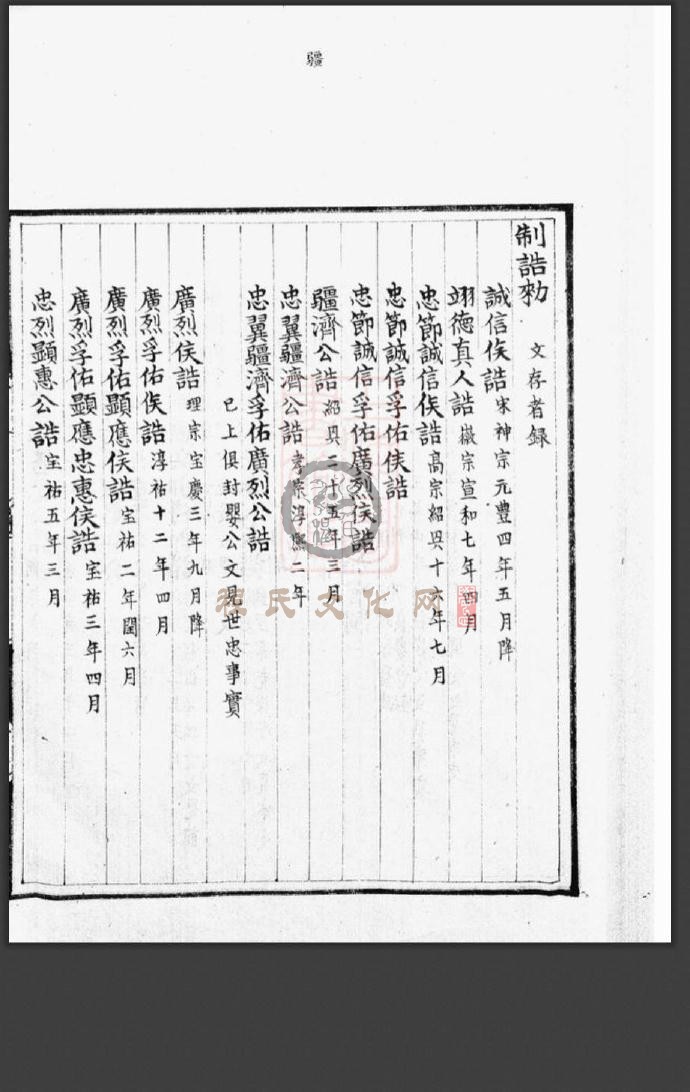 疆
制誥勑 文存者録
誠信侯誥 宋神宗元豐四年五月降
翊德真人誥 徽宗宣和七年四月
忠節誠信侯誥 高宗紹興十六年七月
忠節誠信孚佑侯誥
忠節誠信孚佑廣烈侯誥
疆濟公誥 紹興二十五年三月
忠翼疆濟公誥 孝宗淳熙二年
忠翼疆濟孚佑廣烈公誥
已上俱封嬰公文見世忠事實
廣烈侯誥 理宗宝慶三年九月降
廣烈孚佑侯誥 淳祐十二年四月
廣烈孚佑顯應侯誥 宝祐二年閏六月
廣烈孚佑顯應忠惠侯誥 宝祐三年四月
忠烈顯惠公誥 宝祐五年三月
程氏文化网